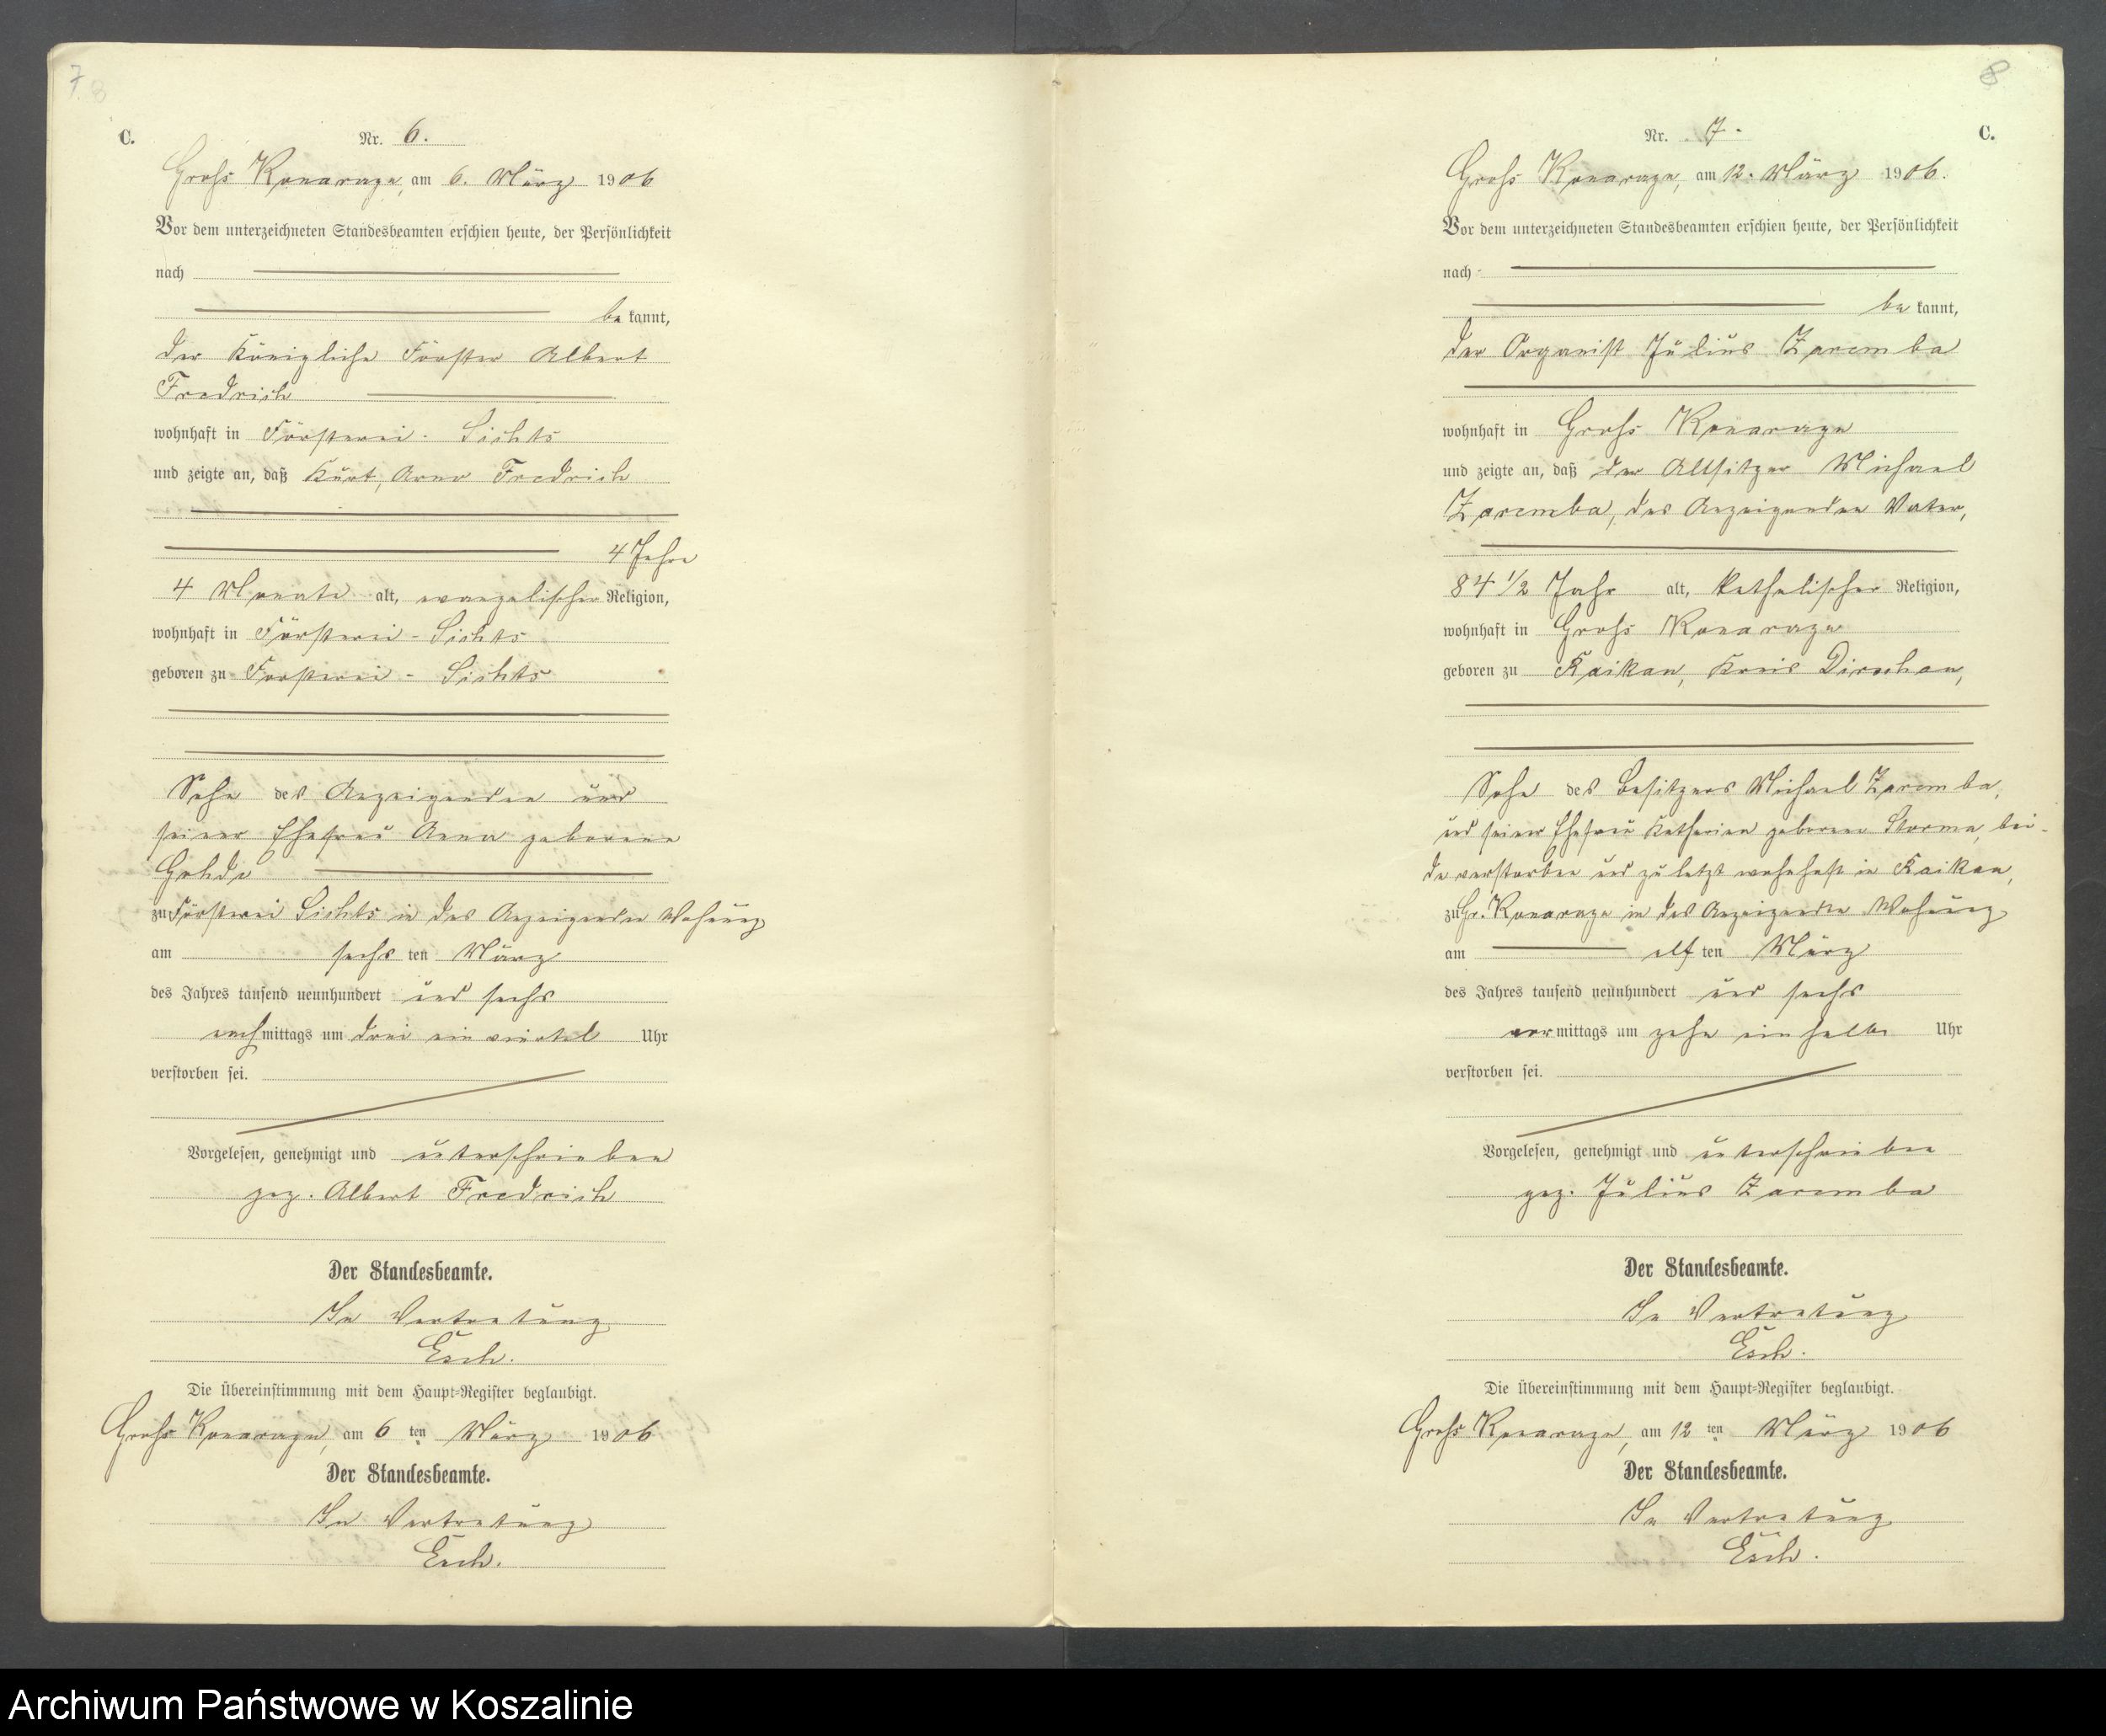 7
8
C.
Nr. 6.
Groß Konarzyn, am 6. März 1906
Vor dem unterzeichneten Standesbeamten erschien heute, der Persönlichkeit
nach
be kannt,
der Königliche Förster Albert
Fredrich
wohnhaft in Försterei - Lichts
und zeigte an, daß Kurt, Arno Fredrich
4 Jahre
4 Monate alt, evangelischer Religion,
wohnhaft in Försterei - Lichts
geboren zu Försterei - Lichts
Sohn des Anzeigenden und
seiner Ehefrau Anna geborene
zu Försterei Lichts in des Anzeigenden Wohnung
am sechs ten März
des Jahres tausend neunhundert und sechs
nachmittags um drei ein viertel Uhr
verstorben sei.
Vorgelesen, genehmigt und unterschrieben
gez. Albert Fredrich
Der Standesbeamte.
In Vertretung
Esch.
Die Übereinstimmung mit dem Haupt-Register beglaubigt.
Groß Konarzyn, am 6 ten März 1906
Der Standesbeamte.
In Vertretung
Esch.
8
Nr. 7.
C.
Groß Konarzyn, am 12. März 1906.
Vor dem unterzeichneten Standesbeamten erschien heute, der Persönlichkeit
nach
be kannt,
der Organist Julius Zaremba
wohnhaft in Groß Konarzyn
und zeigte an, daß der Altsitzer Michael
Zaremba, des Anzeigenden Vater,
84 1/2 Jahr alt, katholischer Religion,
wohnhaft in Groß Konarzyn
geboren zu Raikau, Kreis Dirschau,
Sohn des Besitzers Michael Zaremba,
und seiner Ehefrau Katharina geborene Storma, bei-
de verstorben und zuletzt wohnhaft in Raikau,
zu Gr. Konarzyn in des Anzeigenden Wohnung
am elf ten März
des Jahres tausend neunhundert und sechs
vormittags um zehn ein halb Uhr
verstorben sei.
Vorgelesen, genehmigt und unterschrieben
gez. Julius Zaremba
Der Standesbeamte.
In Vertretung
Esch.
Die Übereinstimmung mit dem Haupt-Register beglaubigt.
Groß Konarzyn, am 12 ten März 1906
Der Standesbeamte.
In Vertretung
Esch.
Archiwum Państwowe w Koszalinie